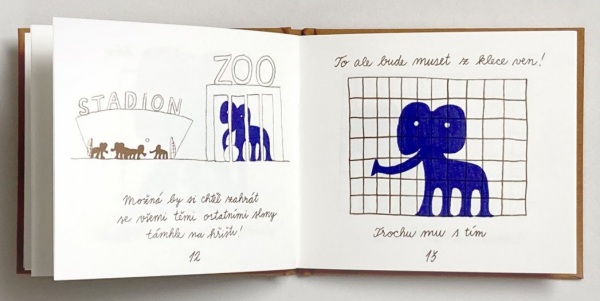 STADION
ZOO
Možná by si chtěl zahrát
se všemi těmi ostatními slony
támhle na hřišti!
12
To ale bude muset z klece ven!
Trochu mu s tím
13